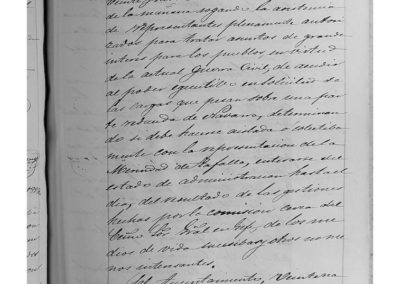 de la mañana rogando la asistencia
de representantes plenamente autori
zados para tratar asuntos de grande
interés para los pueblos en virtud
de la actual Guerra Civil, de acudir
al poder egecutivo en solicitud de
las cargas que pesan sobre una par
te reducida de Navarra, determinan
do si debe hacerse aislada o colectiva
mente con la representacion de la
Merindad de Tafalla, enterarse del
estado de administracion hasta el
dia, del resultado de las gestiones
hechas por la comision cerca del
Escmo Sor Gral en Gefe, de los me
dios de vida sucesiva y otros no me
nos interesantes.
El Ayuntamiento,